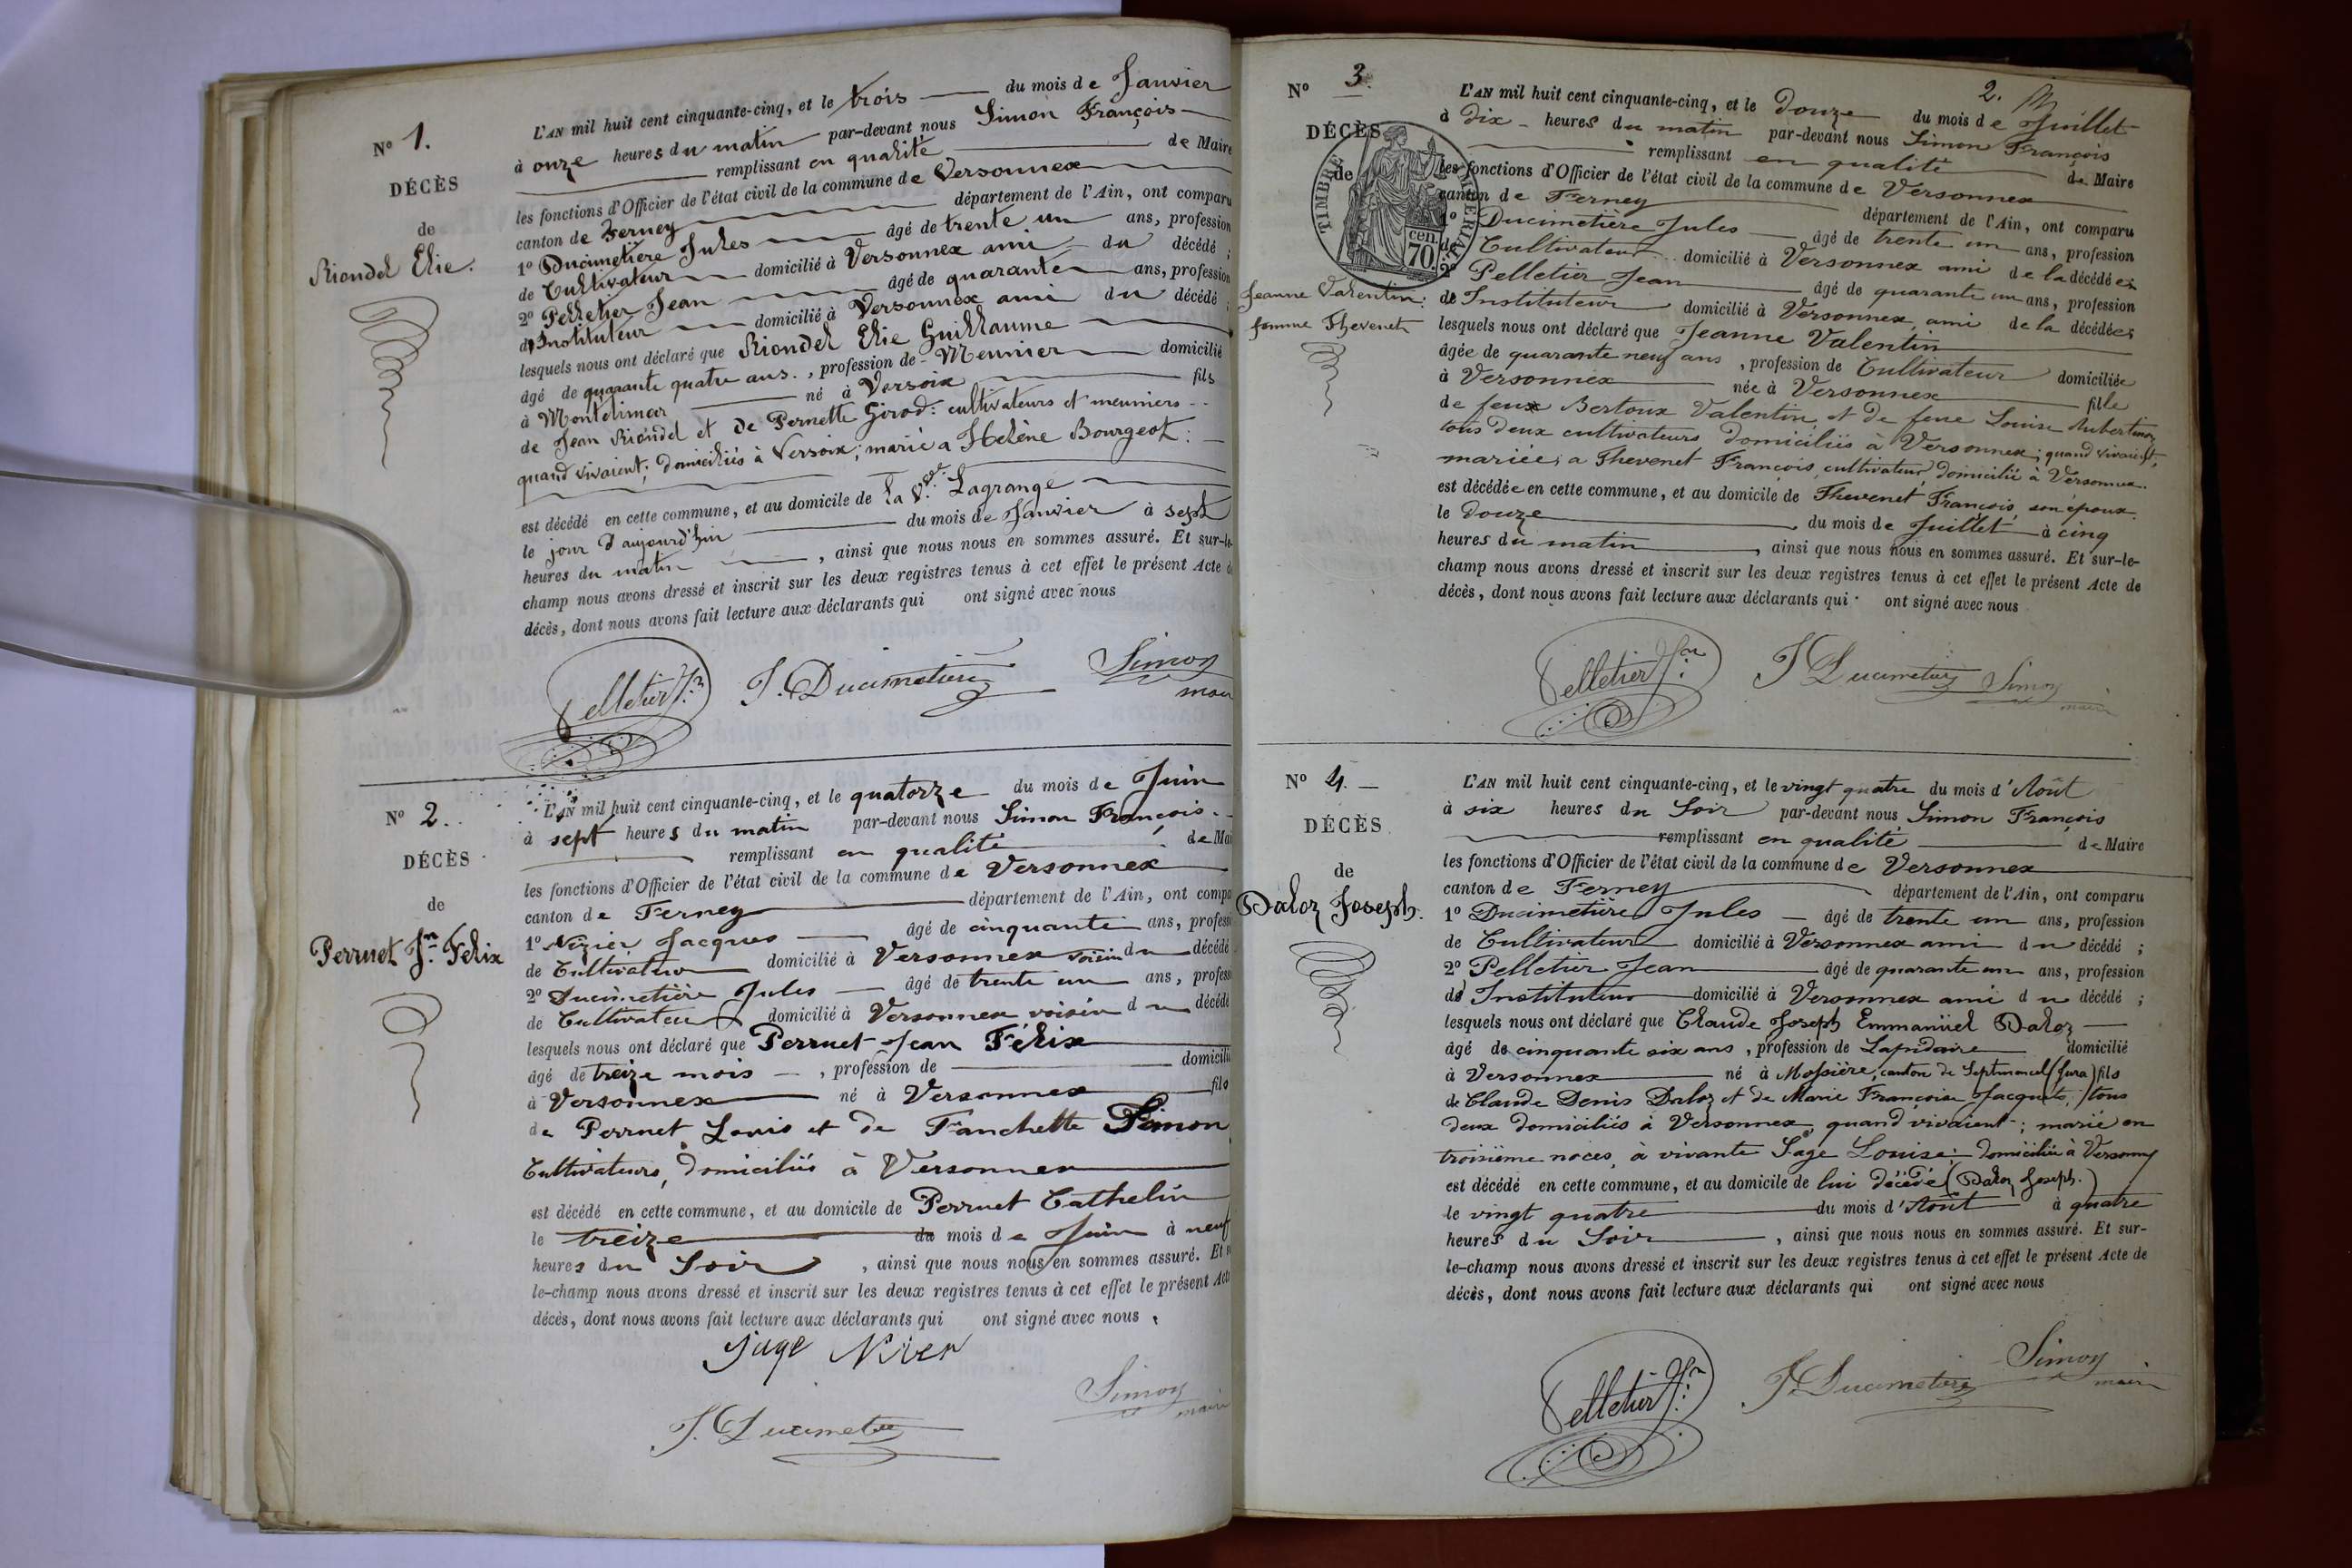 N° 1.
DÉCÈS
de
Riondel Elie.
L'AN mil huit cent cinquante-cinq, et le trois du mois de Janvier
à onze heures du matin par-devant nous Simon François
remplissant en qualité de Maire
les fonctions d'Officier de l'état civil de la commune de Versonnex
canton de Ferney département de l'Ain, ont comparu
1° Ducimetière Jules âgé de trente un ans, profession
de Cultivateur domicilié à Versonnex ami du décédé ;
2° Pelletier Jean âgé de quarante ans, profession
d'Instituteur domicilié à Versonnex ami du décédé ;
lesquels nous ont déclaré que Riondel Elie Guillaume
âgé de quarante quatre ans. , profession de Meunier domicilié
à Montélimar né à Versoix fils
de Jean Riondel et de Pernette Girod: cultivateurs et meuniers
quand vivaient; domiciliés à Versoix; marié a Helène Bourgeot:
est décédé en cette commune, et au domicile de la Ve. Lagrange
le jour d'aujourd'hui du mois de Janvier à sept
heures du matin , ainsi que nous nous en sommes assuré. Et sur-le-
champ nous avons dressé et inscrit sur les deux registres tenus à cet effet le présent Acte de
décès, dont nous avons fait lecture aux déclarants qui ont signé avec nous
Pelletier Jn. J. Ducimetière Simon
maire
N° 2.
DÉCÈS
de
Perruet Jn. Félix
L'AN mil huit cent cinquante-cinq, et le quatorze du mois de Juin
à sept heures du matin par-devant nous Simon François
remplissant en qualité de Mai
les fonctions d'Officier de l'état civil de la commune de Versonnex
canton de Ferney département de l'Ain, ont compa
1° Nizier Jacques âgé de cinquante ans, profess
de Cultivateur domicilié à Versonnex voisin du décédé
2° Ducimetière Jules âgé de trente un ans, profess
de Cultivateur domicilié à Versonnex voisin du décédé
lesquels nous ont déclaré que Perruet Jean Félix
âgé de treize mois , profession de domicilié
à Versonnex né à Versonnex fils
de Perruet Louis et de Fanchette Simon
Cultivateurs, domiciliés à Versonnex
est décédé en cette commune, et au domicile de Perruet Cathelin
le treize du mois de Juin à neuf
heures du Soir , ainsi que nous nous en sommes assuré. Et s
le-champ nous avons dressé et inscrit sur les deux registres tenus à cet effet le présent Acte
décès, dont nous avons fait lecture aux déclarants qui ont signé avec nous.
Simon
maire
J. Ducimetière
2.
N° 3.
DÉCÈS
de
TIMBRE IMPERIAL
70 cen.
Jeanne Valentin:
femme Thevenet
L'AN mil huit cent cinquante-cinq, et le Douze du mois de Juillet
à Dix heures du matin par-devant nous Simon François
remplissant en qualité de Maire
les fonctions d'Officier de l'état civil de la commune de Versonnex
canton de Ferney département de l'Ain, ont comparu
1° Ducimetière Jules âgé de trente un ans, profession
de Cultivateur domicilié à Versonnex ami de la décédée;
2° Pelletier Jean âgé de quarante un ans, profession
de Instituteur domicilié à Versonnex, ami de la décédée;
lesquels nous ont déclaré que Jeanne Valentin
âgée de quarante neuf ans , profession de Cultivateur domiciliée
à Versonnex née à Versonnex fille
de feux Bertoux Valentin, et de feue Louise
tous deux cultivateurs domiciliés à Versonnex; quand vivaient,
mariée, a Thevenet François, cultivateur, domicilié à Versonnex.
est décédée en cette commune, et au domicile de Thevenet François, son époux.
le douze du mois de Juillet à cinq
heures du matin , ainsi que nous nous en sommes assuré. Et sur-le-
champ nous avons dressé et inscrit sur les deux registres tenus à cet effet le présent Acte de
décès, dont nous avons fait lecture aux déclarants qui ont signé avec nous
Pelletier Jn. J Ducimetière Simon
maire
N° 4.
DÉCÈS
de
Daloz Joseph.
L'AN mil huit cent cinquante-cinq, et le vingt quatre du mois d'Août
à six heures du Soir par-devant nous Simon François
remplissant en qualité de Maire
les fonctions d'Officier de l'état civil de la commune de Versonnex
canton de Ferney département de l'Ain, ont comparu
1° Ducimetière Jules âgé de trente un ans, profession
de Cultivateur domicilié à Versonnex ami du décédé ;
2° Pelletier Jean âgé de quarante un ans, profession
de Instituteur domicilié à Versonnex ami du décédé ;
lesquels nous ont déclaré que Claude Joseph Emmanüel Daloz
âgé de cinquante six ans , profession de Lapidaire domicilié
à Versonnex né à Mossière, canton de Septmoncel (Jura) fils
de Claude Denis Daloz et de Marie Françoise tous
deux domiciliés à Versonnex quand vivaient; marié en
troisième noces, à vivante Sage Louise: domiciliée à Versonnex
est décédé en cette commune, et au domicile de lui décédé (Daloz Joseph.)
le vingt quatre du mois d'Août à quatre
heures du Soir , ainsi que nous nous en sommes assuré. Et sur-
le-champ nous avons dressé et inscrit sur les deux registres tenus à cet effet le présent Acte de
décès, dont nous avons fait lecture aux déclarants qui ont signé avec nous
Pelletier Jn. J. Ducimetière Simon
maire